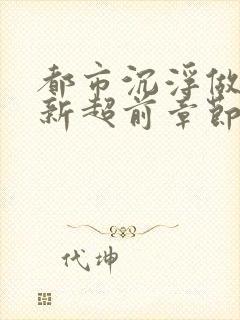 都市沉浮做
新超前章节
代坤